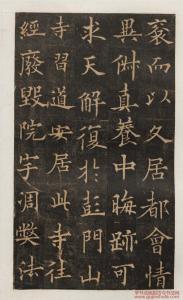 而以久居都會情
異真養中晦跡可
求天解復於彭門山
寺習道安居此寺往
經廢毀院宇凋弊法